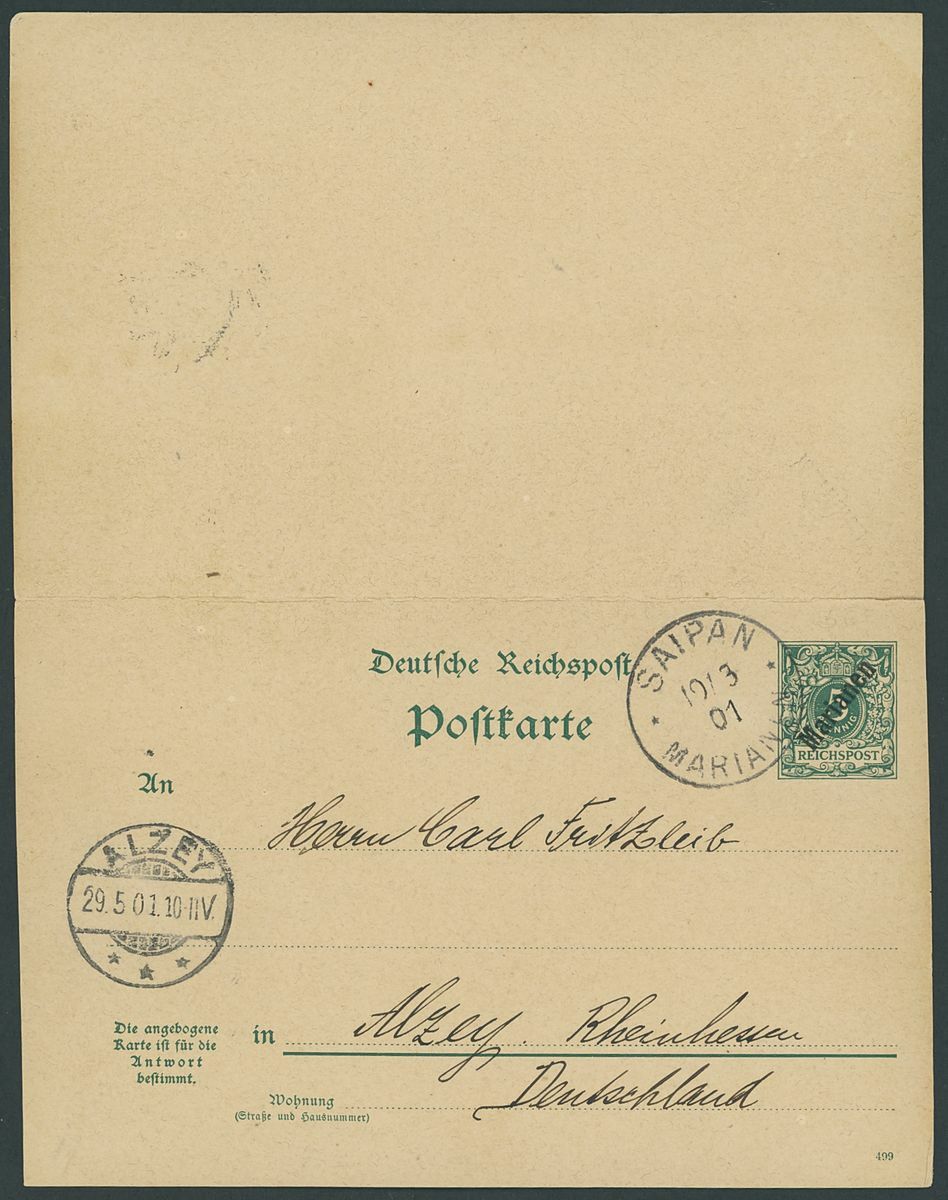 Deutsche Reichspost
Postkarte
SAIPAN
19/3
01
MARIANEN
5
PFENNIG
Marianen
REICHSPOST
An
Herrn Carl Fritzleib
ALZEY
29.5 01.10-11V.
in Alzey. Rheinhessen
Deutschland
Die angebogene
Karte ist für die
Antwort
bestimmt.
Wohnung
(Straße und Hausnummer)
499